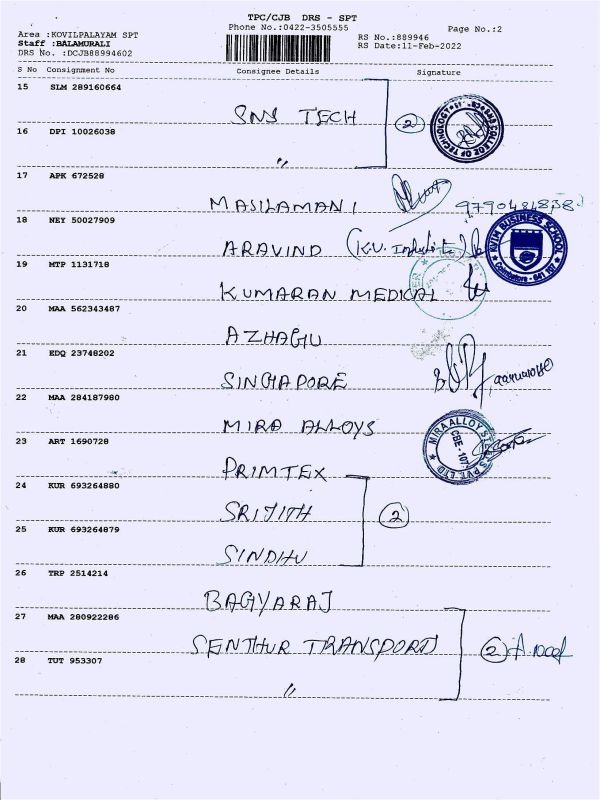 TPC/CJB DRS - SPT
Phone No.:0422-3505555
Page No.:2
Area :KOVILPALAYAM SPT
Staff :BALAMURALI
DRS No. :DCJB88994602
RS No.:889946
RS Date:11-Feb-2022
S No Consignment No Consignee Details Signature
15 SLM 289160664
SNS TECH 2
SNS COLLEGE OF TECHNOLOGY
16 DPI 10026038
"
17 APK 672528
MASILAMANI
18 NEY 50027909
ARAVIND (K.V.
BUSINESS SCHOOL
Coimbatore - 641 107
19 MTP 1131718
KUMARAN MEDICAL
20 MAA 562343487
AZHAGU
21 EDQ 23748202
SINGAPORE
22 MAA 284187980
MIRA ALLOYS
MIRA ALLOY STEELS PVT. LTD
CBE - 107
23 ART 1690728
PRIMTEX
24 KUR 693264880
SRIJITH 2
25 KUR 693264879
SINDHU
26 TRP 2514214
BAGYARAJ
27 MAA 280922286
SENTHUR TRANSPORT 2
28 TUT 953307
"